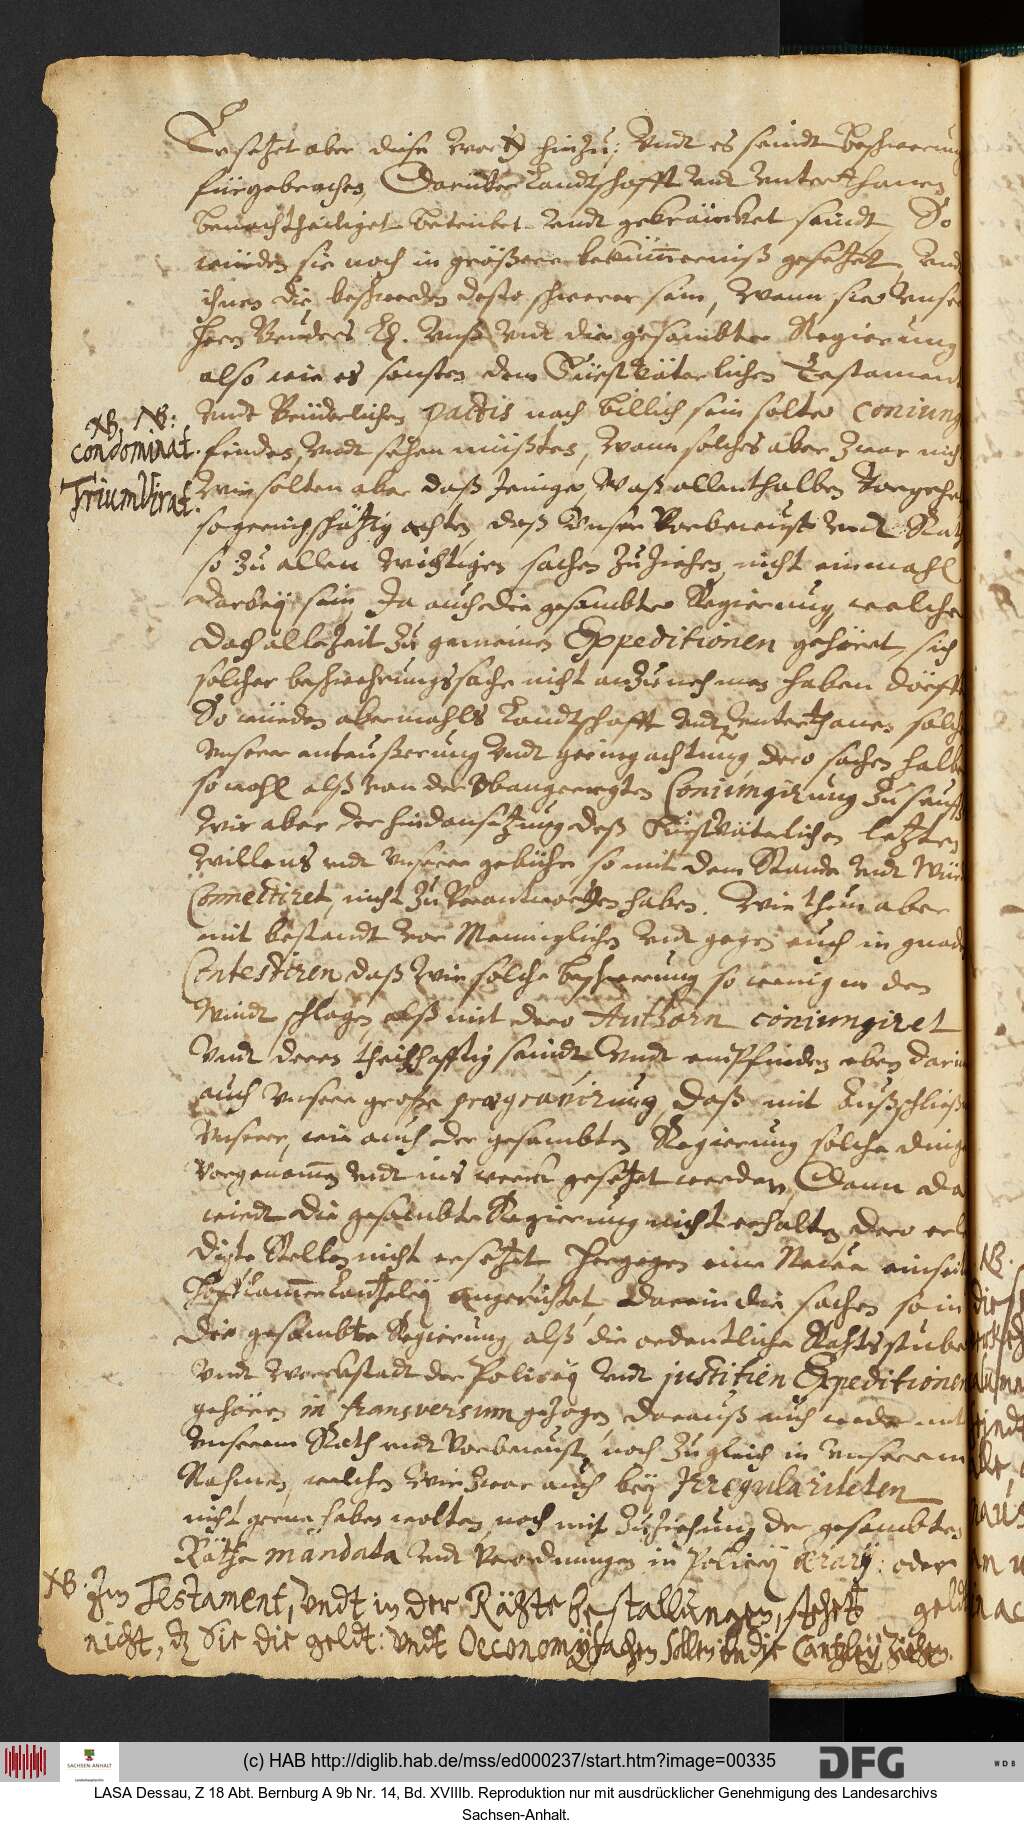 Er setzet aber diese wortt hinzu; Undt es seindt beschwerung
fürgebrachen, Darüber Landtschafft undt Unterthanen
benachtheiliget betrübet undt gekräncket seindt, So
würden sie noch in größere bekümerniß gesetzet, undt
ihnen die beschwerden desto schwerer sein, Wann sie unser
Herr Bruders Ld. Unß undt die gesambte Regierung
also wie es sonsten dem Fürst Väterlichen Testament
undt Brüderlichen pactis nach billich sein solte coniung
finden, undt sehen müßten, Wann solches aber zwar nich
Wir solten aber daß Jenige, Waß allenthalben vorgehe
so geringschätzig achten, daß Unser Vorbewust undt Rat
so zu allen wichtigen sachen zu ziehen, nicht einmahl
darbey sein, Ja auch die gesambte Regierung, welche
doch allezeit zu gemeinen Expeditionen gehöret, sich
solcher beschwehrungssache nicht anzunehmen haben dörffte
So würden abermahls Landtschafft undt Unterthanen solch
unserer enteußerung undt geringachtung, dero sachen halbe
sowohl alß von der obangeregten Coniungirung zu seuff
Wir aber der hindansetzung deß Fürstväterlichen letzten
Willens undt unserer gebühr so mit dem Stande undt Wür
Connectiret, nicht zu Verantwortten haben. Wir thun aber
mit bestandt vor Menniglichen undt gegen euch in gnad
Contestiren daß wir solche beschwerung so wenig in den
Windt schlagen, alß mit dero Authorn coniungiret
Undt deren theilhafftig seindt, Undt empfinden eben darin
auch unsere große prægravirung, daß mit Außschließ
Unserer, wie auch der gesambten Regierung solche dinge
vorgenomen undt ins werck gesetzet werden, Dann da
wirdt die gesambte Regierung nicht erhalten, dero erle
digte Stellen nicht ersetzet hergegen eine Newe einseit
HoffCamerCantzeley angerichtet, darein die sachen so in
die gesambte Regierung, alß die ordentliche Rahtsstube
undt Werckstadt der Policey undt justitien Expeditionen
gehören in transversum gezogen, darauß auch weder mit
Unserem Rath undt Vorbewust, noch zugleich in unserem
Nahmen, welchen wir zwar auch bey Irregulariteten
nicht gerne haben wolten, noch mit zuziehung der gesambten
Räthe mandata undt Verordnungen in Policey ærary: oder
geldt
NB. NB:
condominat.
TriumVirat.
NB. Im Testament, undt in der Rähte bestallungen, stehet
nicht, dz Sie die geldt: undt Oeconomysachen sollen in die Cantzley ziehen.
NB.
(c) HAB http://diglib.hab.de/mss/ed000237/start.htm?image=00335
SACHSEN-ANHALT
DFG
WDB
LASA Dessau, Z 18 Abt. Bernburg A 9b Nr. 14, Bd. XVIIIb. Reproduktion nur mit ausdrücklicher Genehmigung des Landesarchivs
Sachsen-Anhalt.